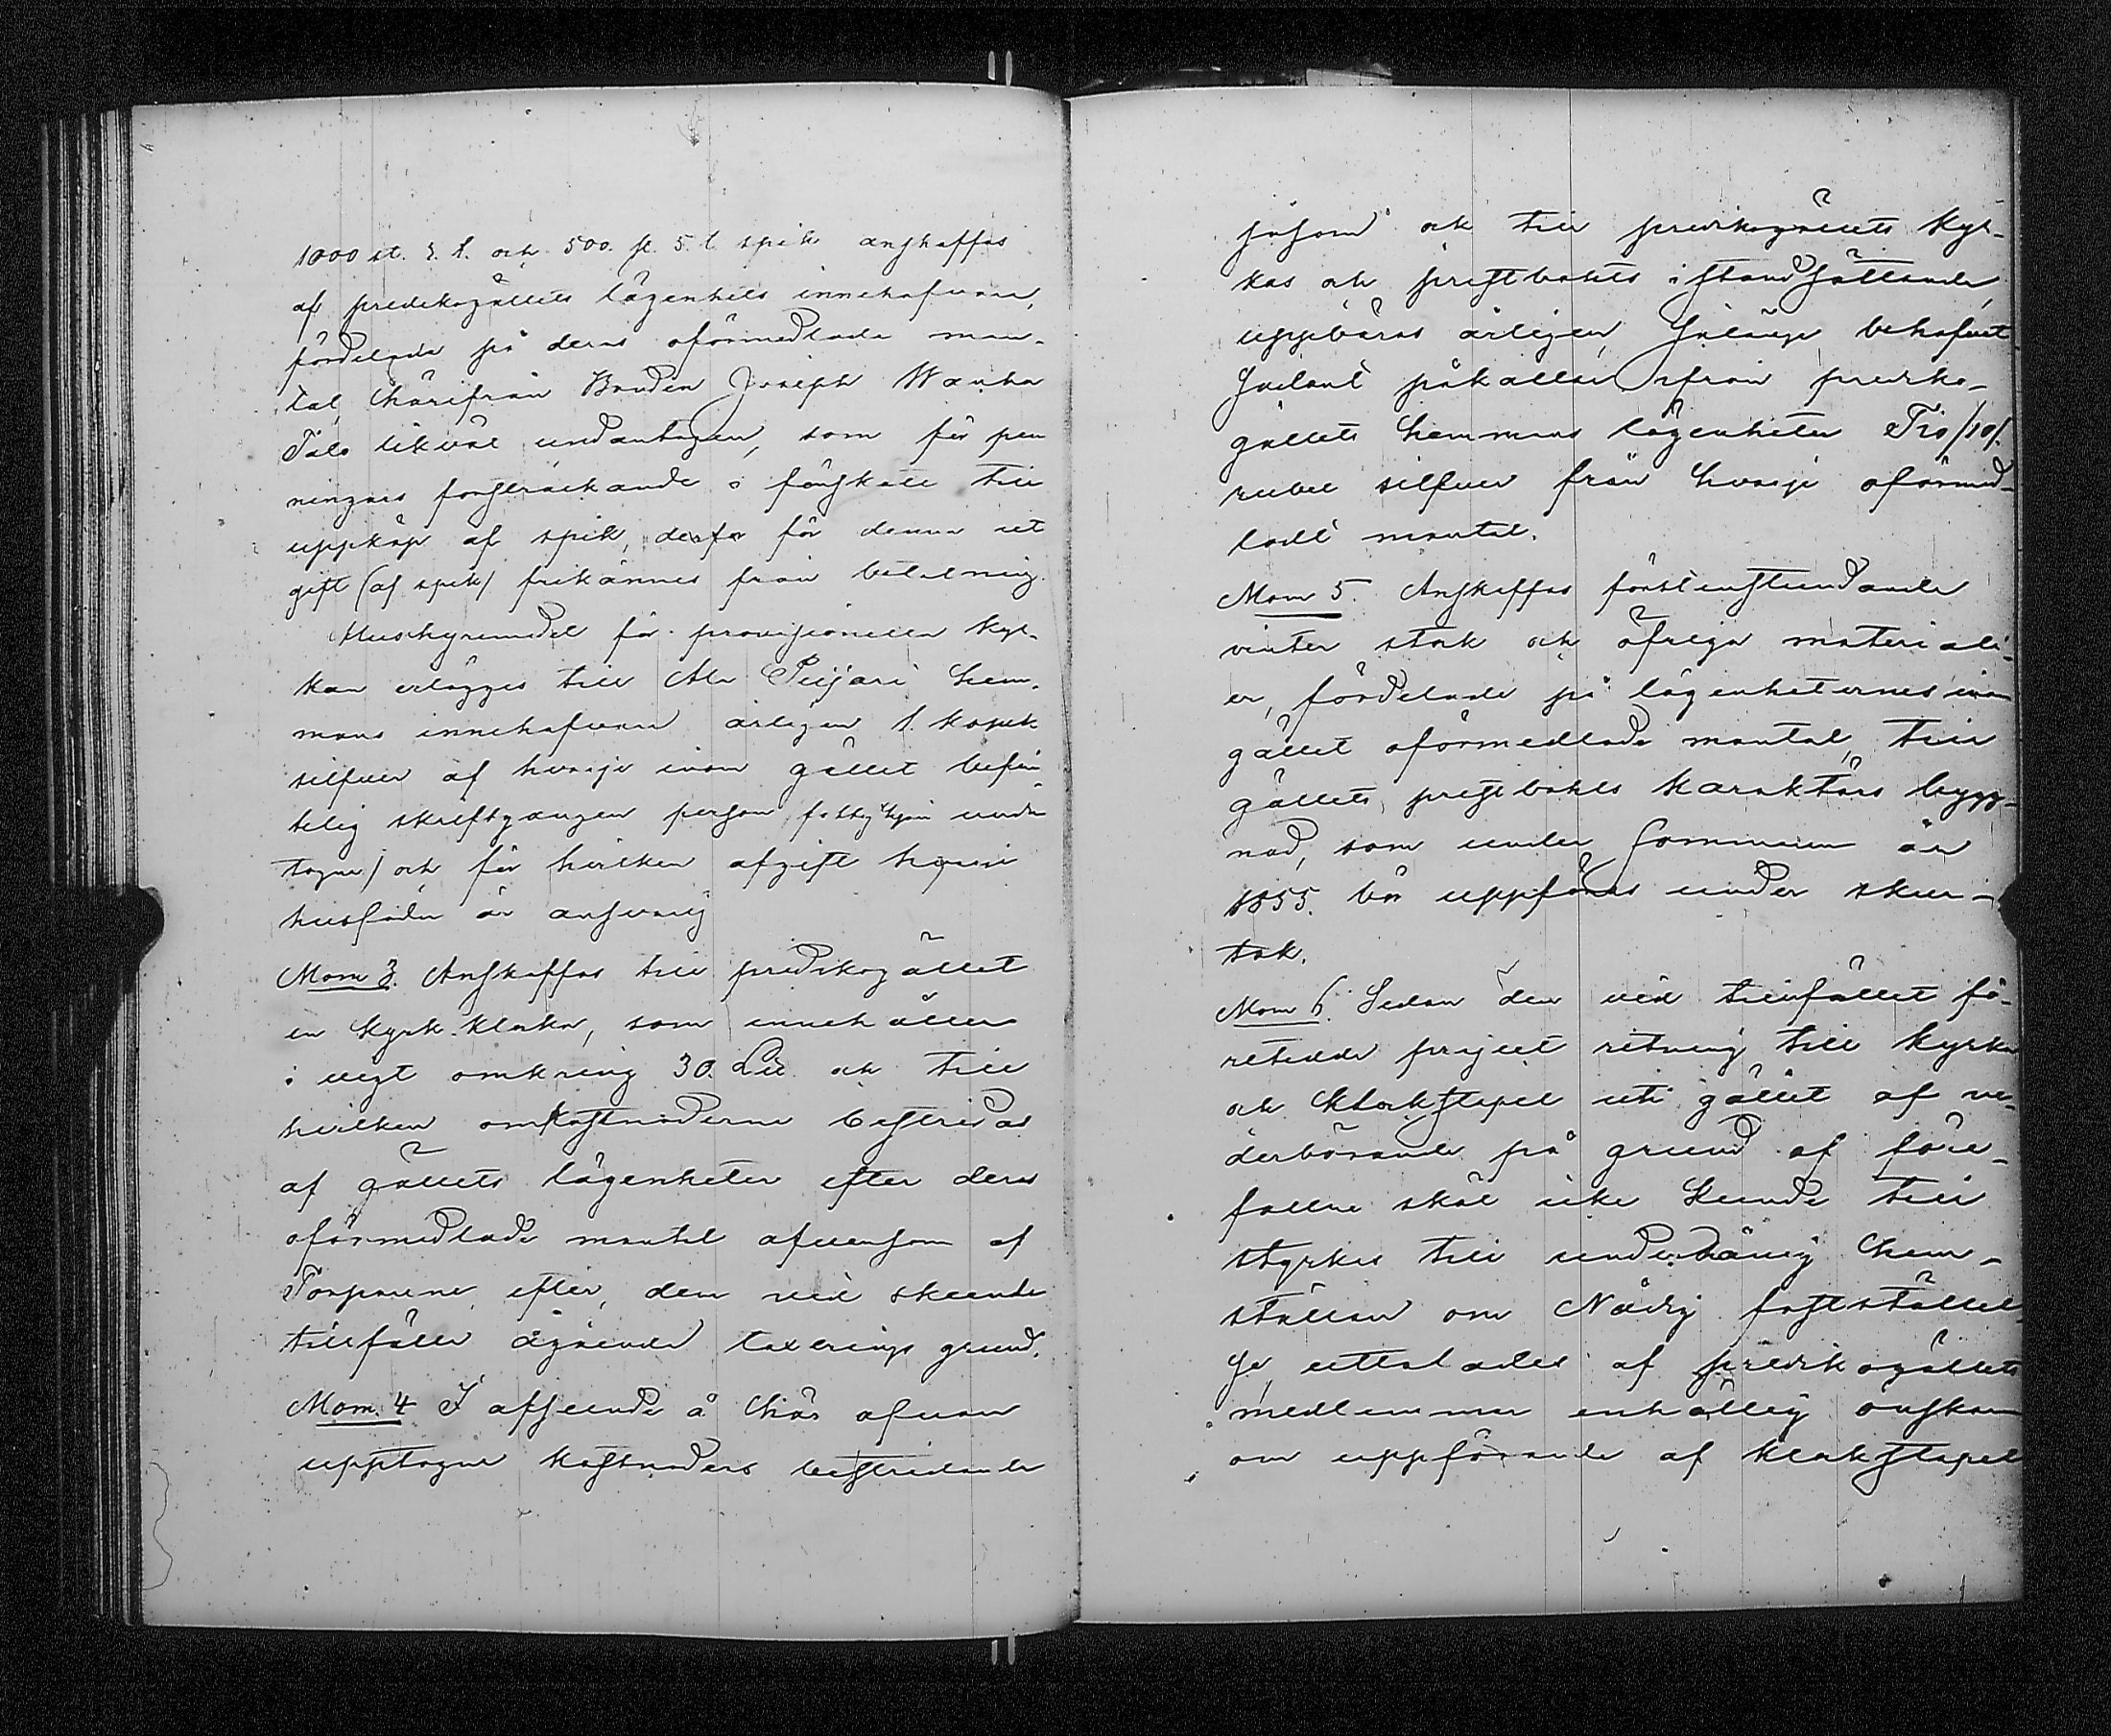 1000 st. 3. t. och 500. st. 5. t. spik anskaffas
af predikogällets lägenhets innehafvare,
fördelade på deras oförmedlade man-
tal, härifrån Bonden Joseph Wanha
Talo likväl undantagen, som för pen
ningars försträckande i förskott till
uppköp af spik, derför för denna ut
gift (af spik) frikännes från betalning.
Hushyremedel för provisionella kyr-
kan erlägges till Ala Peijari hem-
mans innehafvare årligen 1. kopek
silfver af hvarje inom gället befin
telig skriftgången person fattighjon undan
tagne) och för hvilken afgift hvarje
husfader är ansvarig
Mom 3. Anskaffas till predikogället
en kyrk klocka, som innehåller
i vigt omkring 30. Lu och till
hvilken omkostnaderne bestridas
af gällets lägenheter efter deras
oförmedlade mantal afvensom af
Torparene efter, den vid skeende
tillfälle ägande taxerings grund.
Mom. 4 I afseende å här ofvan
upptagne kostnaders bestridande
såsom och till predikogällets kyr-
kas och prestbohls iståndsättande,
uppbäras årligen, så länge behofvet
sådant påkallar ifrån prediko-
gällets hemmans lägenheter Tio /10/.
rubel silfver från hvarje oförmed-
ladt mantal.
Mom 5. Anskaffas förstinstundande
vinter stock och öfriga materiali-
er, fördelade på lägenheternes inom
gället oförmedlade mantal, till
gällets prestbohls karaktärs bygg-
nad, som under sommaren år
1855. bör uppföras under skur-
tak.
Mom 6. Sedan den vid tillfället fö-
retedde project ritning till kyrka
och Klockstapel uti gället af ve-
derbörande på grund af före-
fallne skäl icke kunde till
styrkes till underdånig hem-
ställan om Nådig fastställel-
se, uttalades af predikogällets
medlemmar enhällig önskan
om uppförande af klockstapel